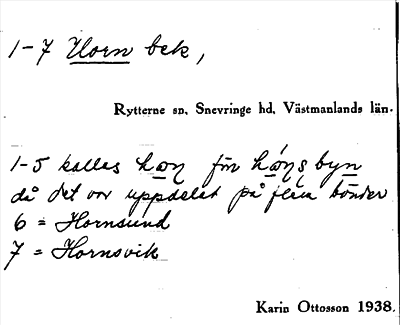 1-7 Horn bek,
Rytterne sn, Snevringe hd, Västmanlands län.
1-5 kallas hɷn för hɷ́nsbyn
då det var uppdelat på flera bönder
6 = Hornsund
7 = Hornsvik
Karin Ottosson 1938.